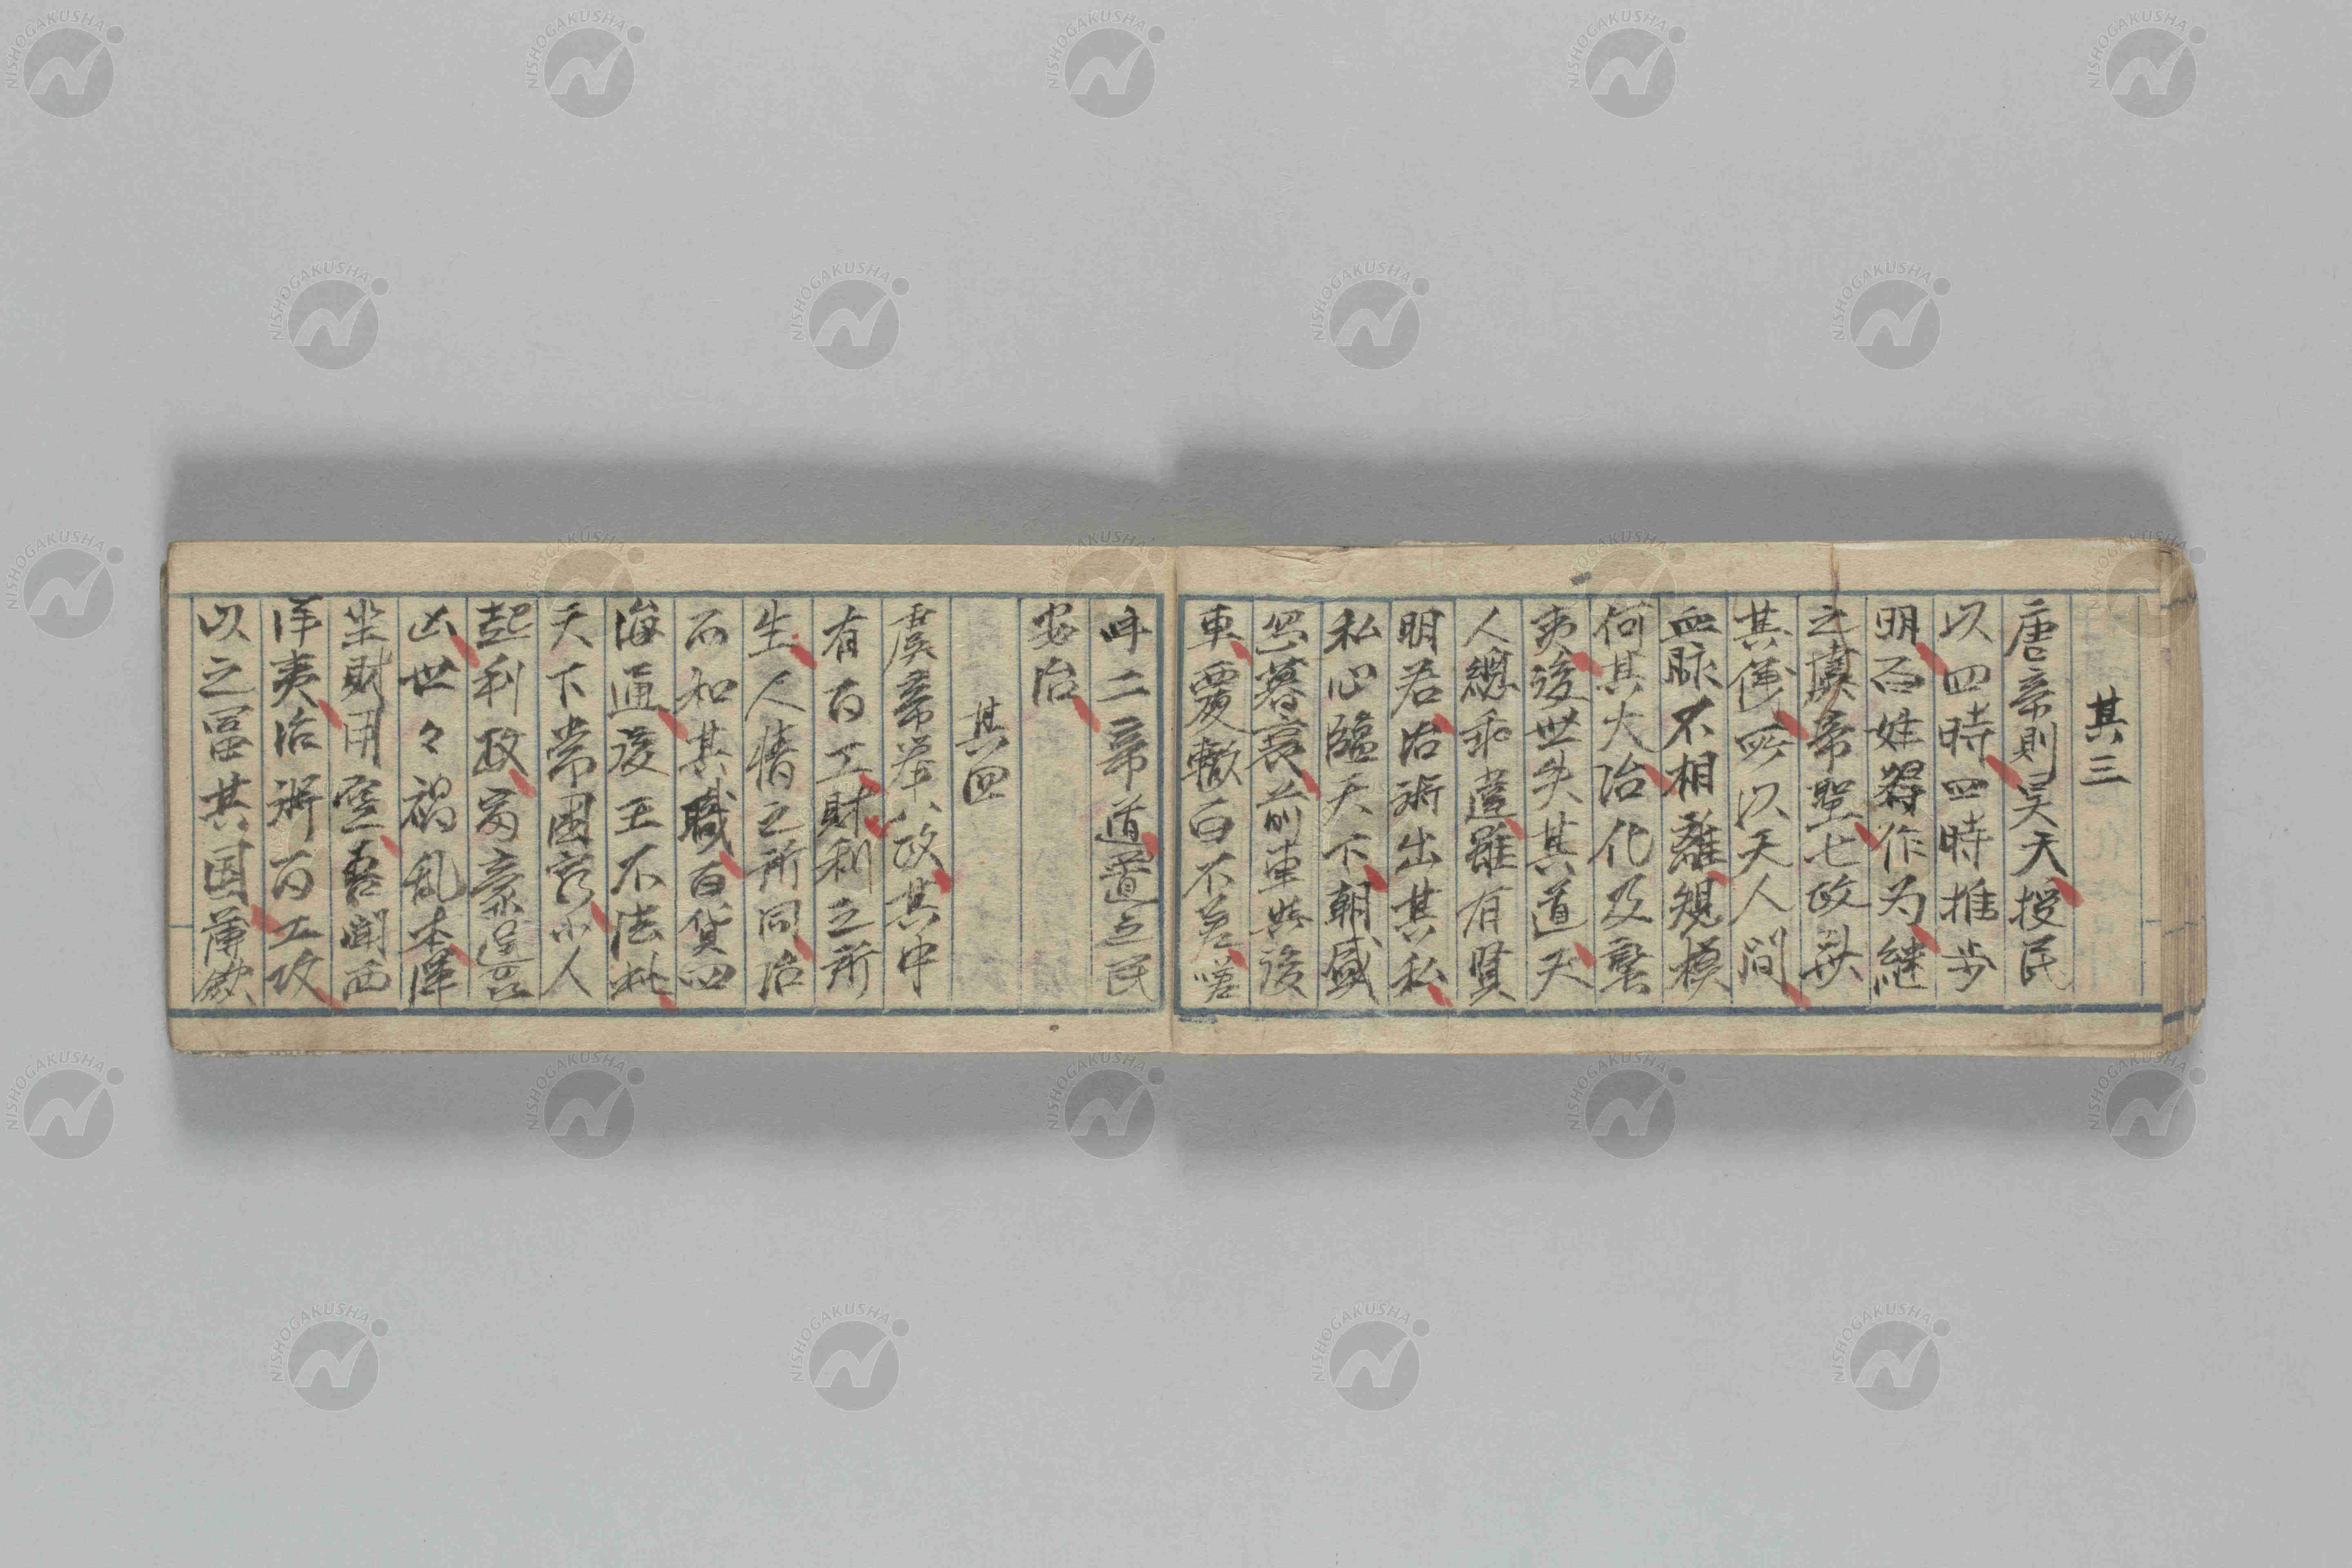 其三
唐帝則昊天授民
以四時四時推步
明百姓得作為継
之虞帝聖七政欽
其衡所以天人間
血脈不相離規模
何其大治化及蛮
夷後世失其道天
人總乖違雖有賢
明君治術出其私
私心臨天下朝盛
忽暮衰前車与後
車覆轍白不差嗟
吁二帝道遵之民
安治
其四
虞帝挙八政其中
有百工財利之所
生人情之所同治
而和其職百貨四
海通後王不法此
天下常困窮小人
起利政富豪逞
凶世々禍乱本渾
坐財用空吾聞西
洋夷治術百工攻
以之冨其国薄斂